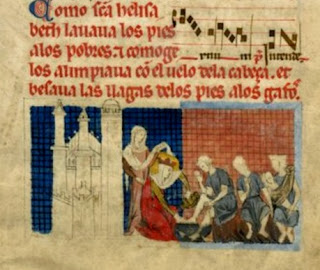 Como sc̃a helisa
beth lauaua los pies
alos pobres. ⁊ comoge
los alimpiaua cõ el uelo dela cabeça. et
besaua las llagas delos pies alos gafos.